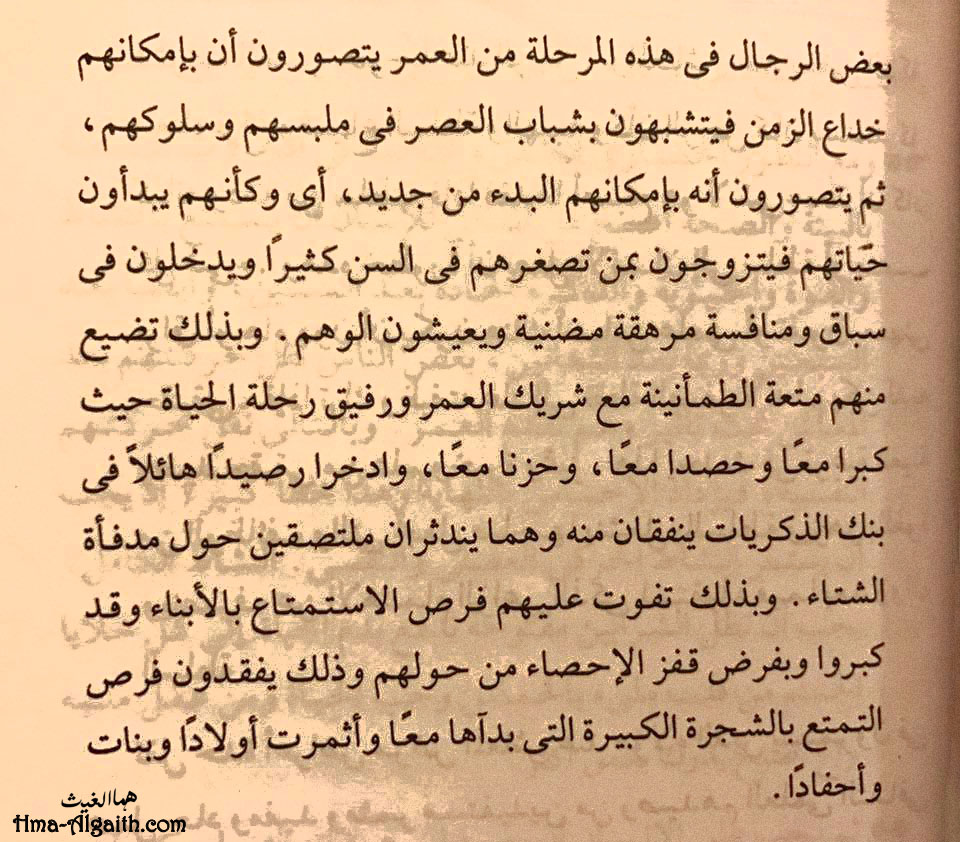 بعض الرجال فى هذه المرحلة من العمر يتصورون أن بإمكانهم
خداع الزمن فيتشبهون بشباب العصر فى ملبسهم وسلوكهم،
ثم يتصورون أنه بإمكانهم البدء من جديد، أى وكأنهم يبدأون
حَياتهم فيتزوجون بمن تصغرهم فى السن كثيرًا ويدخلون فى
سباق ومنافسة مرهقة مضنية ويعيشون الوهم. وبذلك تضيع
منهم متعة الطمأنينة مع شريك العمر ورفيق رحلة الحياة حيث
كبرا معًا وحصدا معًا، وحزنا معًا، وادخرا رصيدًا هائلاً فى
بنك الذكريات ينفقان منه وهما يندثران ملتصقين حول مدفأة
الشتاء. وبذلك تفوت عليهم فرص الاستمتاع بالأبناء وقد
كبروا وبفرض قفز الإحصاء من حولهم وذلك يفقدون فرص
التمتع بالشجرة الكبيرة التى بدآها معًا وأثمرت أولادًا وبنات
وأحفادًا.
هماالغيث
Hma-Algaith.com